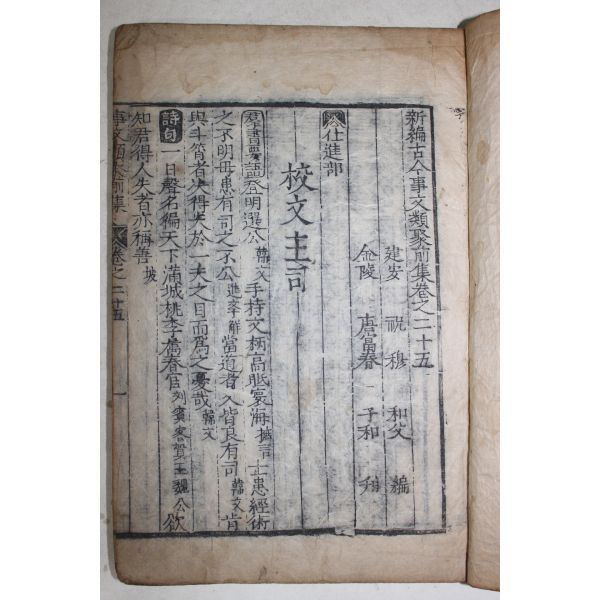 新編古今事文類聚前集卷之二十五
建安 祝穆 和父 編
金陵 唐富春 子和
仕進部
校文主司
羣書要語 登明選公 韓文 手持文柄高眂寰海 摭言 士患經術
之不明毋患有司之不公 進學解 當道者人皆良有司 韓文 肯
與斗筲者決得失於一夫之目而爲之憂哉 韓文
詩句 一日聲名徧天下滿城桃李屬春官 劉賓客賀王 魏公欲
知君得人失者亦稱善 坡
事文類聚前集 卷之二十五 一